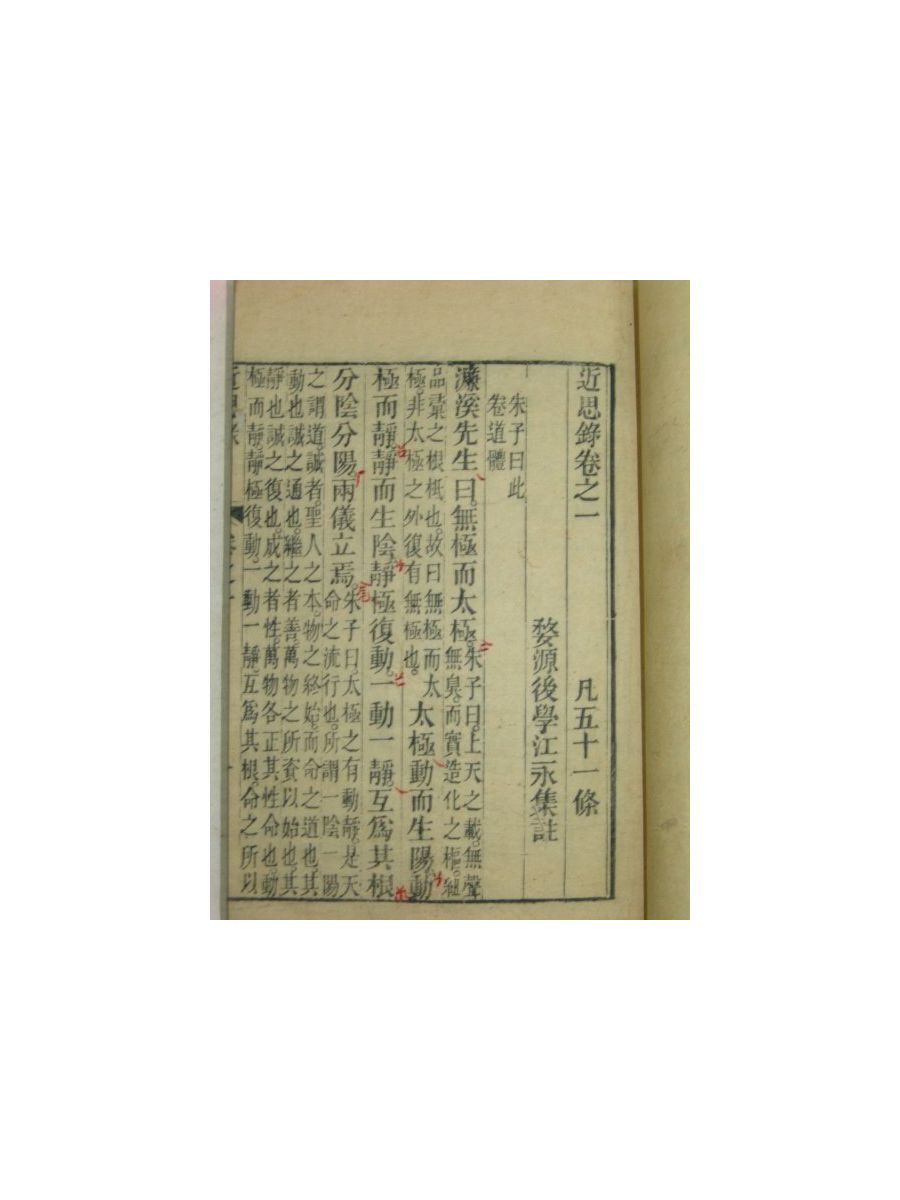 近思錄卷之一　凡五十一條
婺源後學江永集註
朱子曰此
卷道體
濂溪先生曰。無極而太極。朱子曰。上天之載。無聲
無臭。而實造化之樞。紐
品彙之根柢也。故曰無極而太
極。非太極之外復有無極也。太極動而生陽。動
極而靜。靜而生陰。靜極復動。一動一靜。互爲其根
分陰分陽。兩儀立焉。朱子曰。太極之有動靜。是天
命之流行也。所謂一陰一陽
之謂道。誠者。聖人之本。物之終始。而命之道也。其
動也。誠之通也。繼之者善。萬物之所資以始也。其
靜也。誠之復也。成之者性。萬物各正其性命也。動
極而靜。靜極復動。一動一靜。互爲其根。命之所以